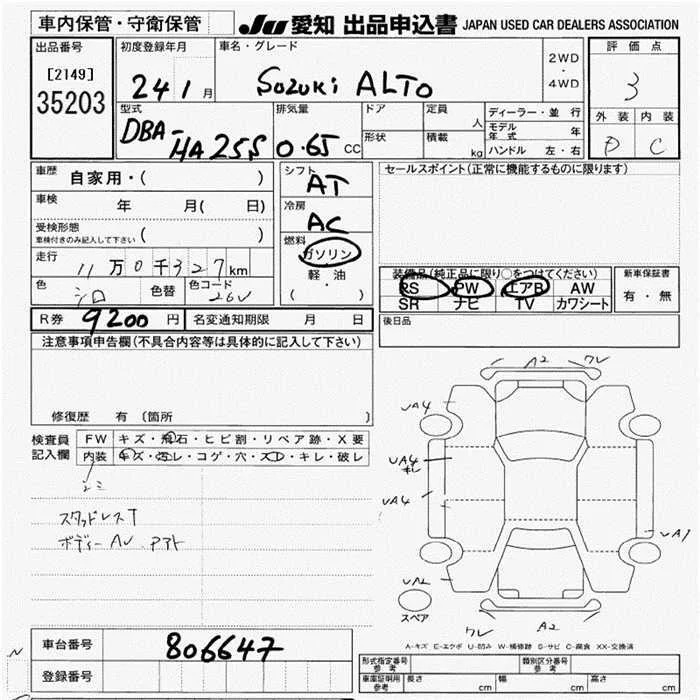 車内保管・守衛保管
JU 愛知 出品申込書 JAPAN USED CAR DEALERS ASSOCIATION
出品番号
[2149]
35203
初度登録年月
24 1 月
車名・グレード
SUZUKI ALTO
2WD
・
4WD
評価点
3
外装 内装
D C
型式
DBA-
HA25S
排気量
0.65 CC
ドア
形状
定員
人
積載
kg
ディーラー・並 行
モデル
年 式 年
ハンドル 左・右
車歴
自家用・( )
車検
年 月( 日)
受検形態
車検付きのみ記入して下さい ( )
走行
11 万 0 千 327 km
色
シロ
色替
色コード
26U
シフト
AT
冷房
AC
燃料
ガソリン
軽・油
( ・ )
セールスポイント(正常に機能するものに限ります)
装備品(純正品に限り○をつけてください)
PS PW エアB AW
SR ナビ TV カワシート
新車保証書
有・無
R券 9200 円 名変通知期限 月 日
後日品
注意事項申告欄(不具合内容等は具体的に記入して下さい)
修復歴 有 〔箇所 〕
検査員
記入欄
FW キズ・飛石・ヒビ割・リペア跡・X要
内装 キズ・汚レ・コゲ・穴・スレ・キレ・破レ
シミ
スタッドレスT
ボディーAU
A2
ワレ
UA4
UA4
キレ
UA4
UA1
UA2
スペア
ワレ
A2
A-キズ E-エクボ U-凹み W-補修跡 S-サビ C-腐食 XX-交換済
車台番号
806647
登録番号
型式指定番号
参 考
類別区分番号
参 考
車庫証明用
参 考
長さ cm 幅 cm 高さ cm